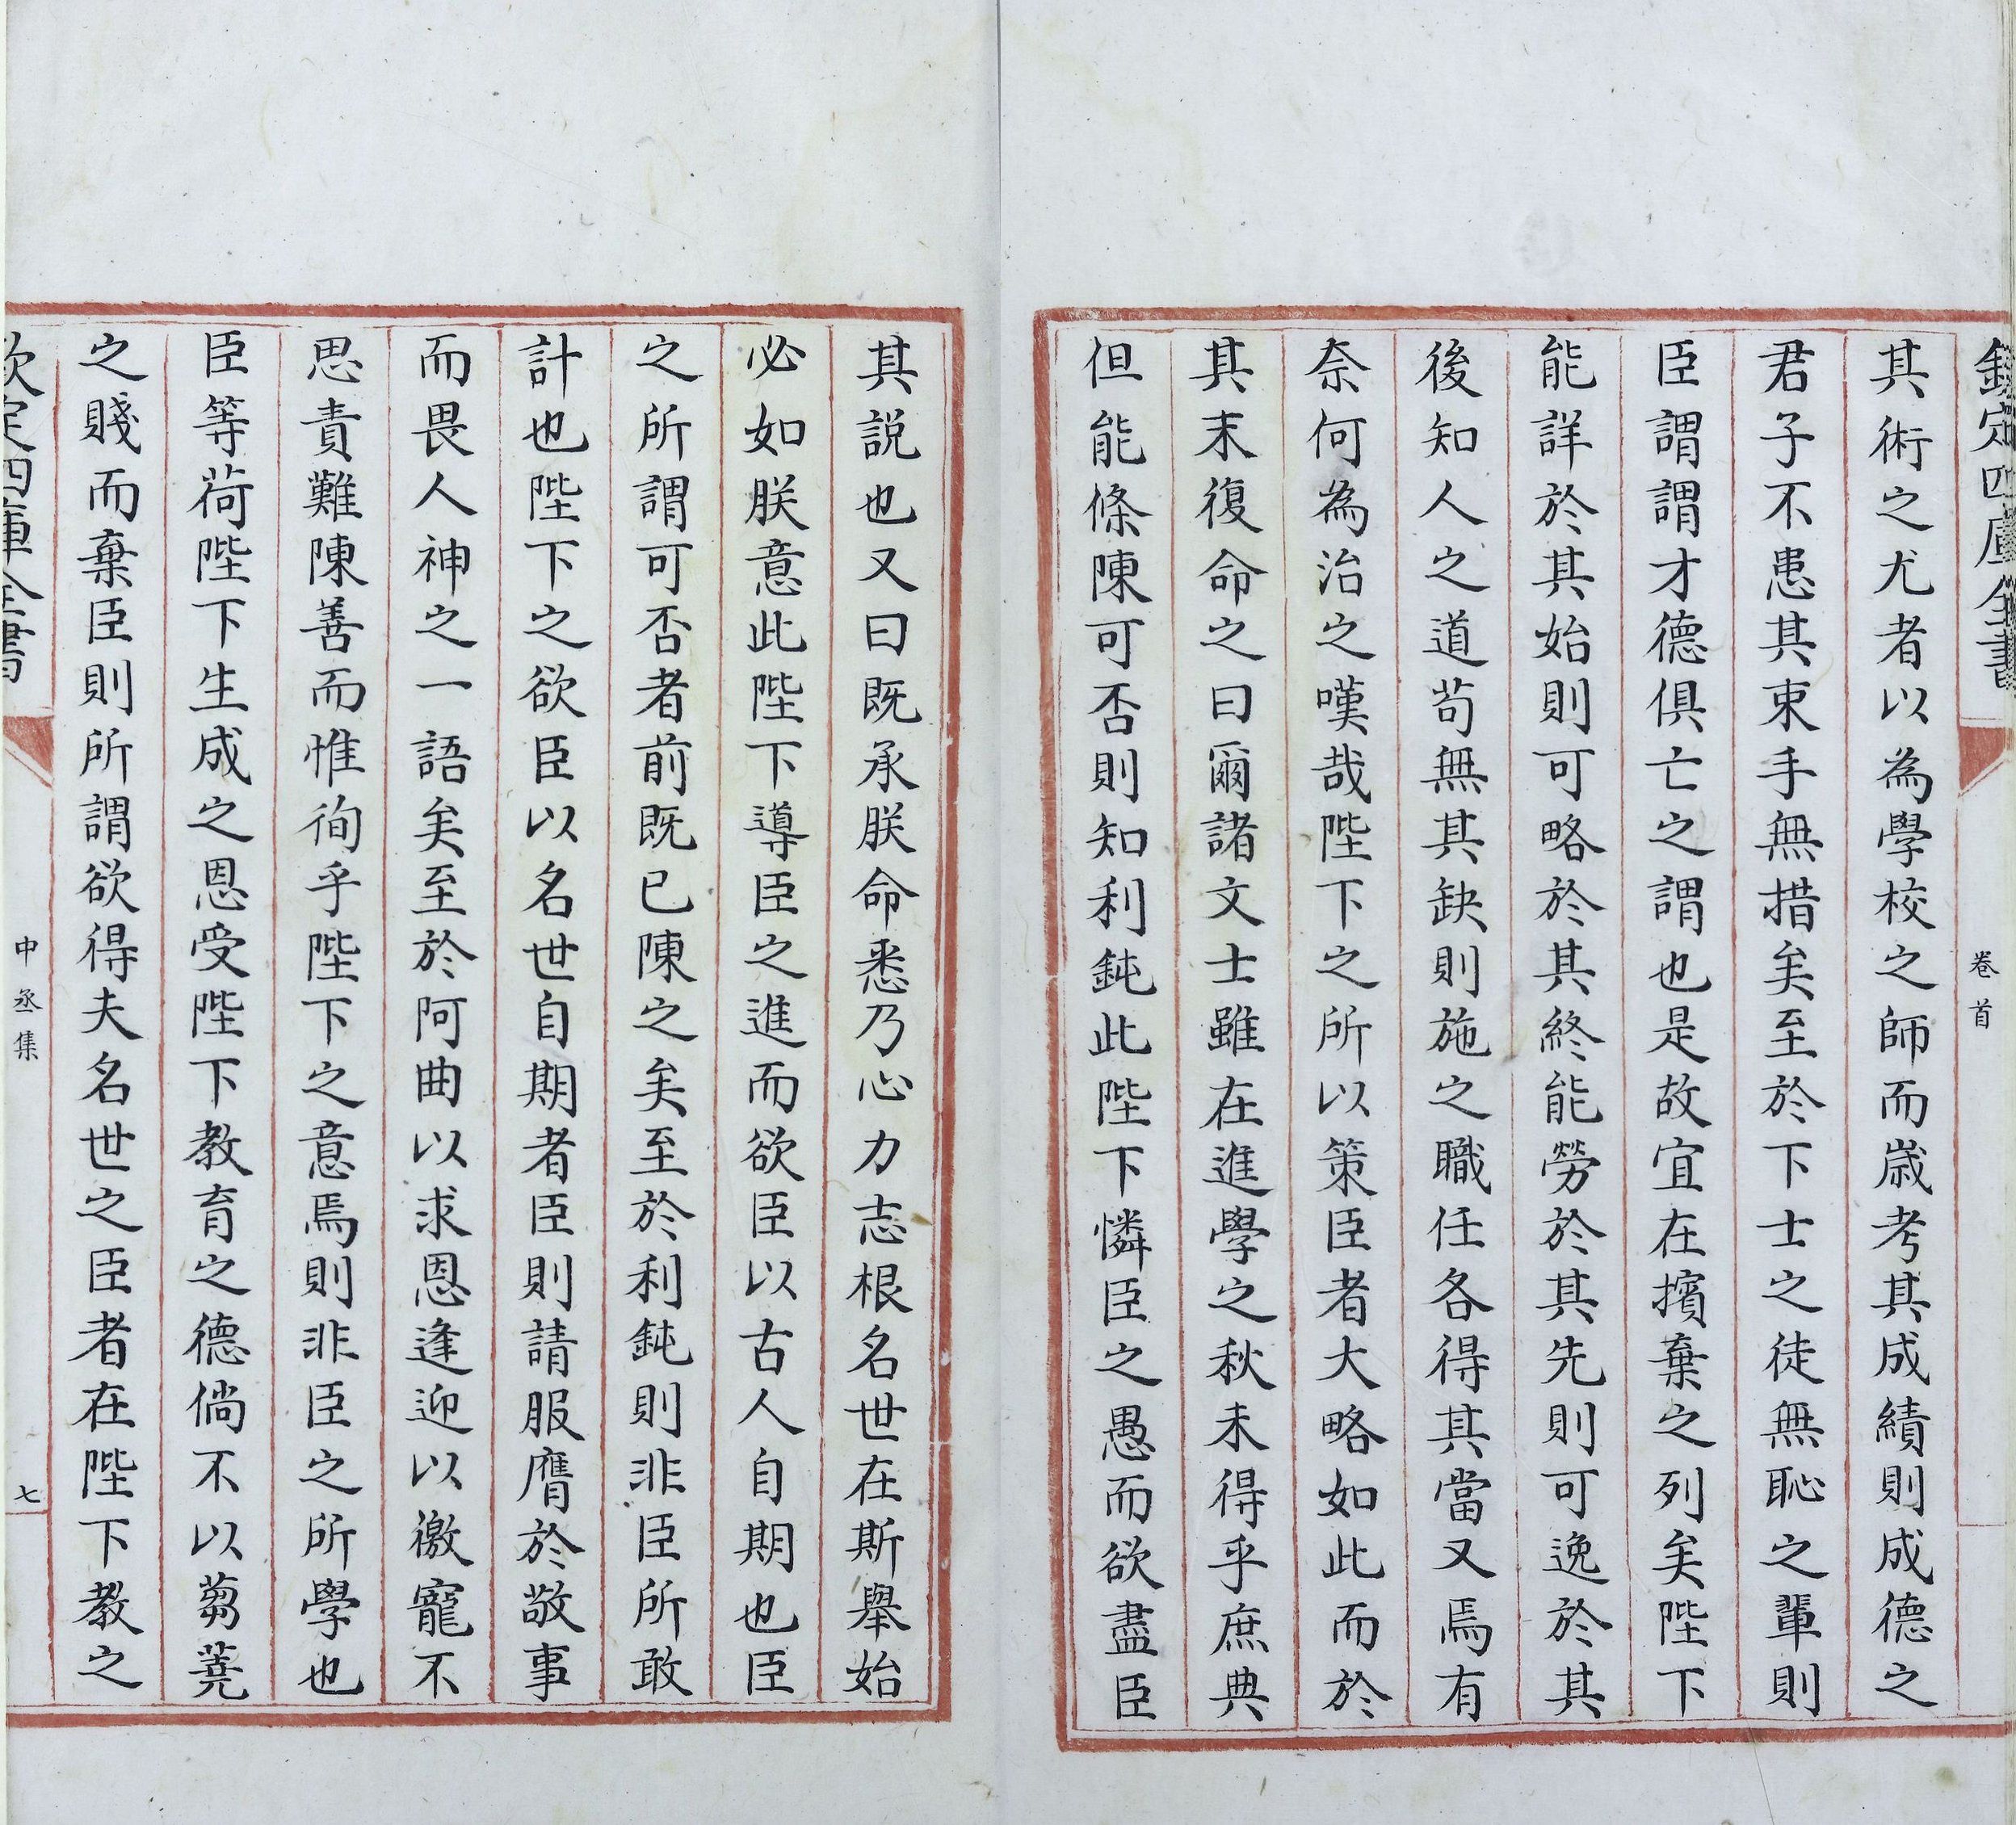 欽定四庫全書
卷首
其術之尤者以為學校之師而嵗考其成績則成德之
君子不患其束手無措矣至於下士之徒無恥之輩則
臣謂謂才德俱亡之謂也是故宜在擯棄之列矣陛下
能詳於其始則可略於其終能勞於其先則可逸於其
後知人之道苟無其缺則施之職任各得其當又焉有
奈何為治之嘆哉陛下之所以策臣者大略如此而於
其末復命之曰爾諸文士雖在進學之秋未得乎庶典
但能條陳可否則知利鈍此陛下憐臣之愚而欲盡臣
其説也又曰既承朕命悉乃心力志根名世在斯舉始
必如朕意此陛下導臣之進而欲臣以古人自期也臣
之所謂可否者前既已陳之矣至於利鈍則非臣所敢
計也陛下之欲臣以名世自期者臣則請服膺於敬事
而畏人神之一語矣至於阿曲以求恩逢迎以徼寵不
思責難陳善而惟徇乎陛下之意焉則非臣之所學也
臣等荷陛下生成之恩受陛下教育之德倘不以蒭蕘
之賤而棄臣則所謂欲得夫名世之臣者在陛下教之
欽定四庫全書
中丞集
七